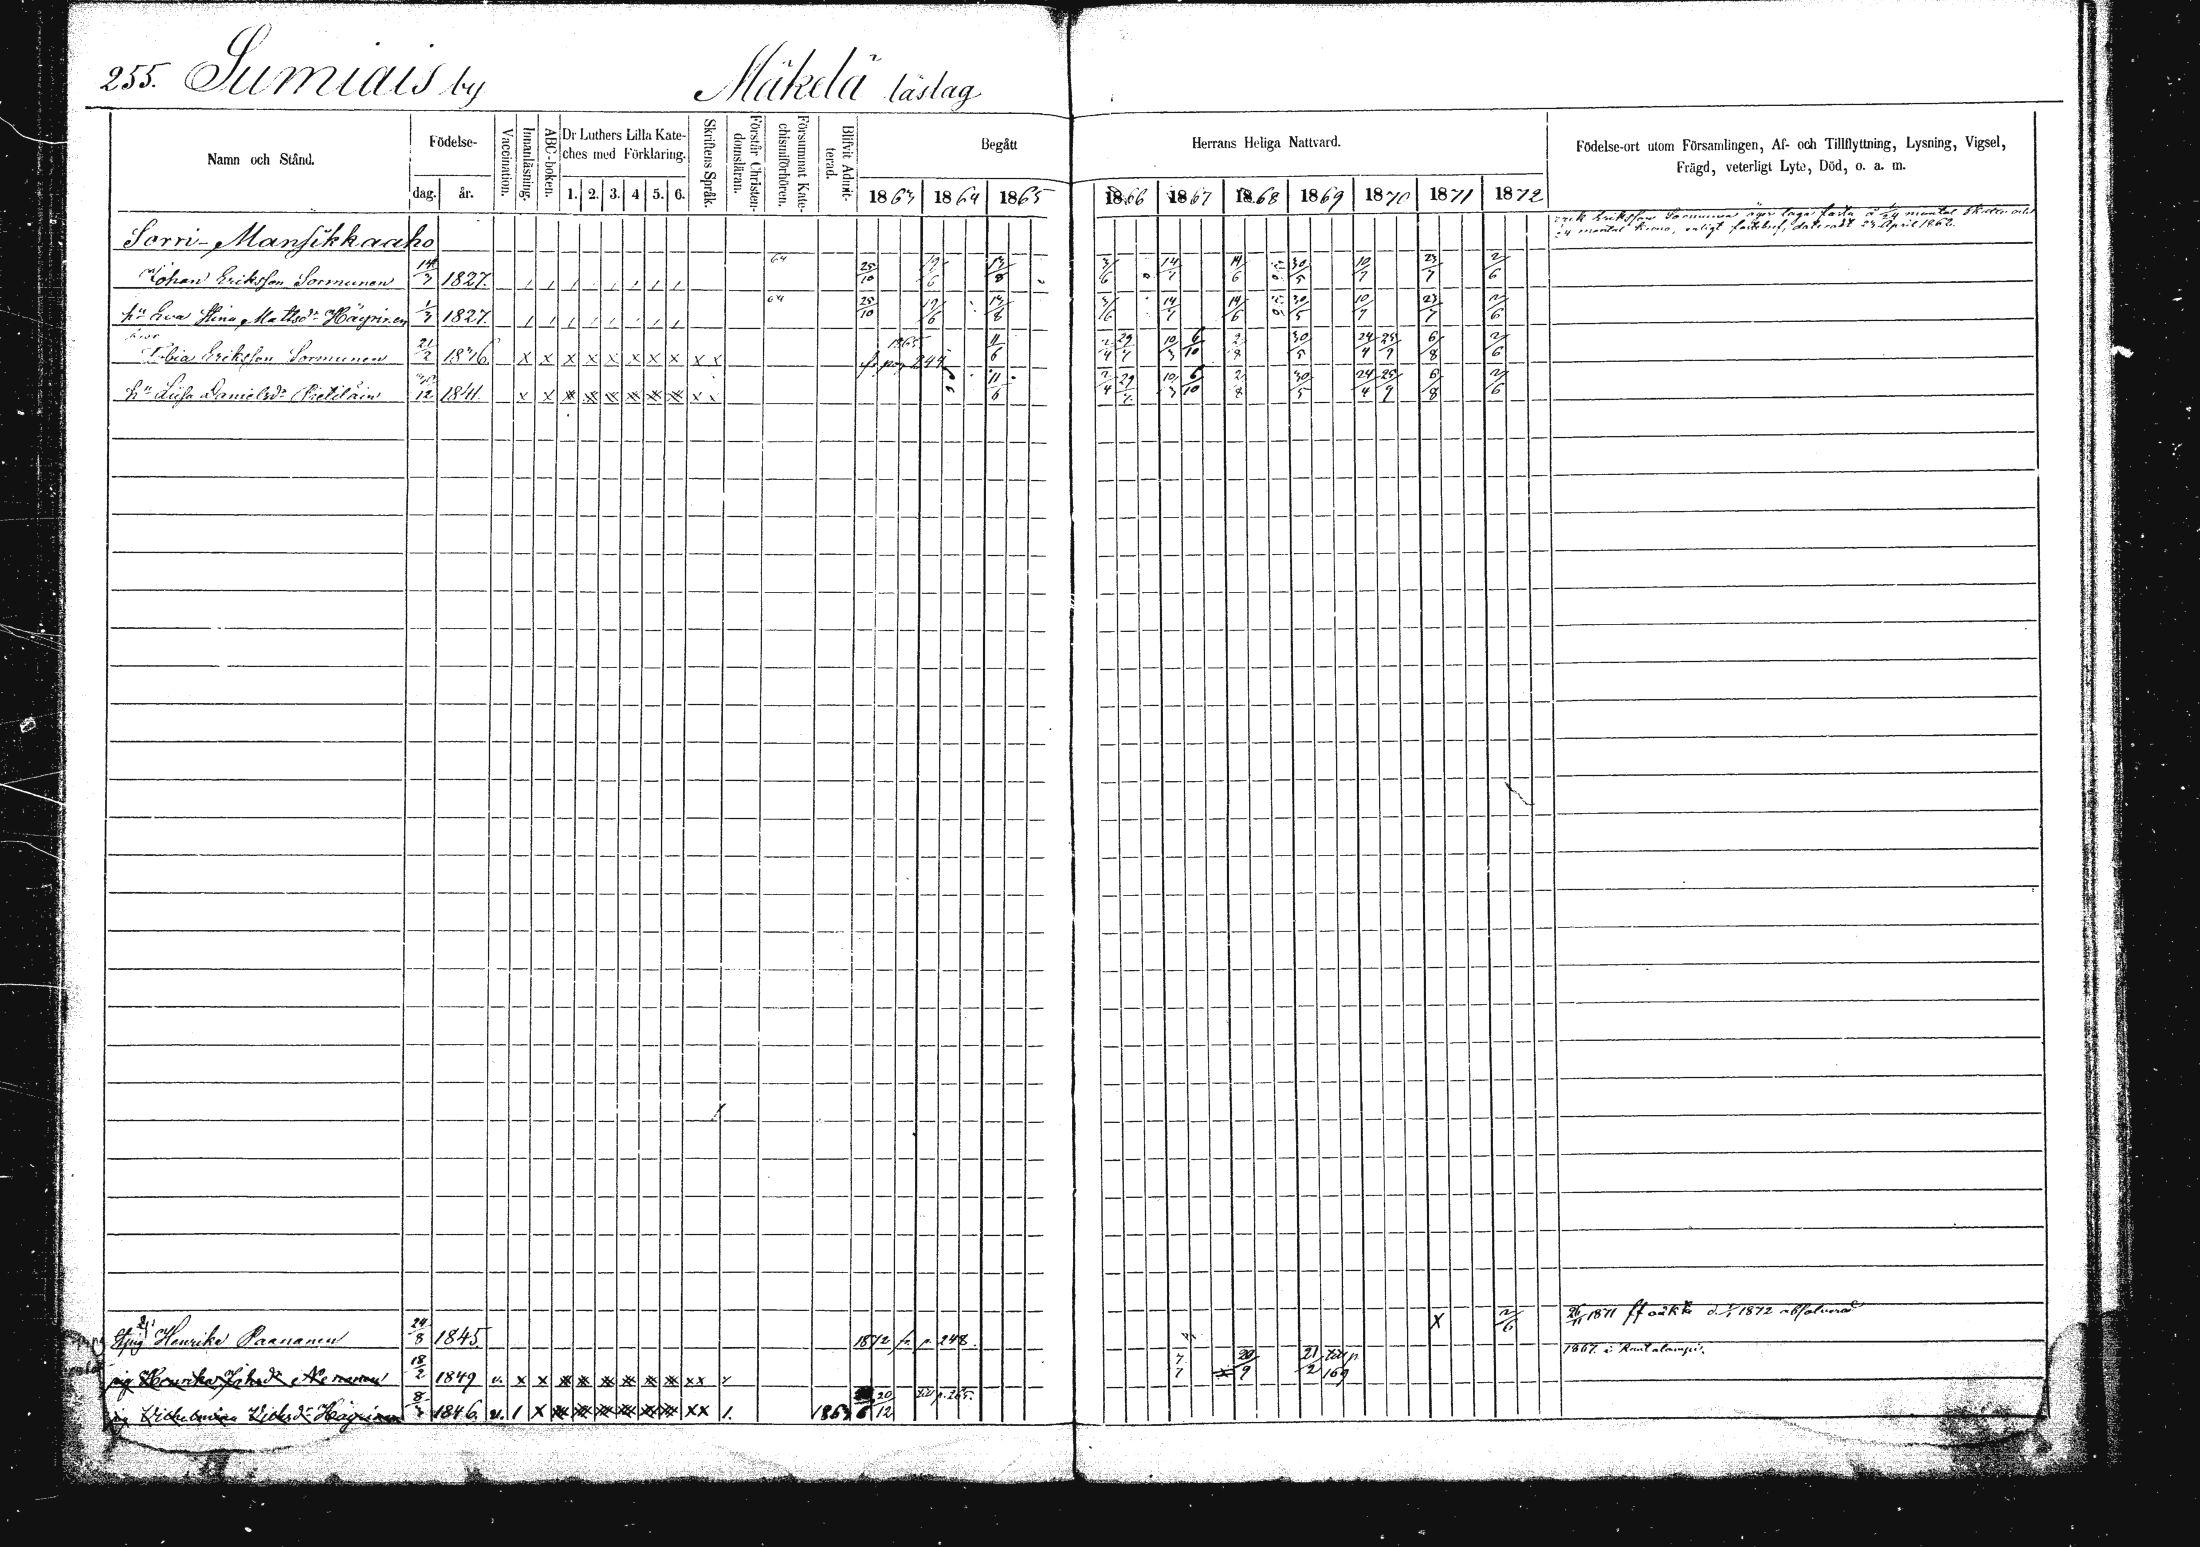 255. Sumiais by Mäkelä läslag
Namn och Stånd. Födelse- dag. år. Vaccination. Innanläsning. ABC-boken. Dr Luthers Lilla Kateches med Förklaring. 1. 2. 3. 4 5. 6. Skriftens Språk. Förstår Christendomsläran. Försummat Katechismiförhören. Blifvit Admitterad. Begått Herrans Heliga Nattvard. Födelse-ort utom Församlingen, Af- och Tillflyttning, Lysning, Vigsel, Frägd, veterligt Lyte, Död, o. a. m.
1863 1864 1865 1866 1867 1868 1869 1870 1871 1872
Sorri-Mansikkaaho
Erik Eriksson Sormunen äger laga fasta å 1/24 mantal
mantal krono, enligt fastebref, dateradt 29 April 1862.
Johan Eriksson Sormunen 14/3 1827. 64 25/10 19/6 13/8 3/6 14/7 14/6 30/5 10/7 23/7 2/6
hu Eva Stina Mattsdr Häyrinen 1/3 1827. 64 25/10 19/6 13/8 3/6 14/7 14/6 30/5 10/7 23/7 2/6
Tobia Eriksson Sormunen 21/2 1836 x x x x x x x x x x 1865 fr pag 244 11/6 2/4 29/7 10/3 6/10 2/8 30/5 24/4 25/9 6/8 2/6
hu Lisa Danielsdr Pietiläin 12 1841. x x x x x x x x x x 11/6 2/4 29/7 10/3 6/10 2/8 30/5 24/4 25/9 6/8 2/6
Henrika Paananen 24/8 1845. 1872 fr p. 248. x 2/6 26/11 1871 1872 absolverad
pig Henrika Johsdr 18/2 1849 v. x x x x x x x x xx 7/7 20/9 21/2 till p 169 1867 i Rautalampi.
pig Vilhelmina Häyrinen 8 1846. v. 1 x x x x x x x xx 1. 1863 6 20/12 till p. 265.